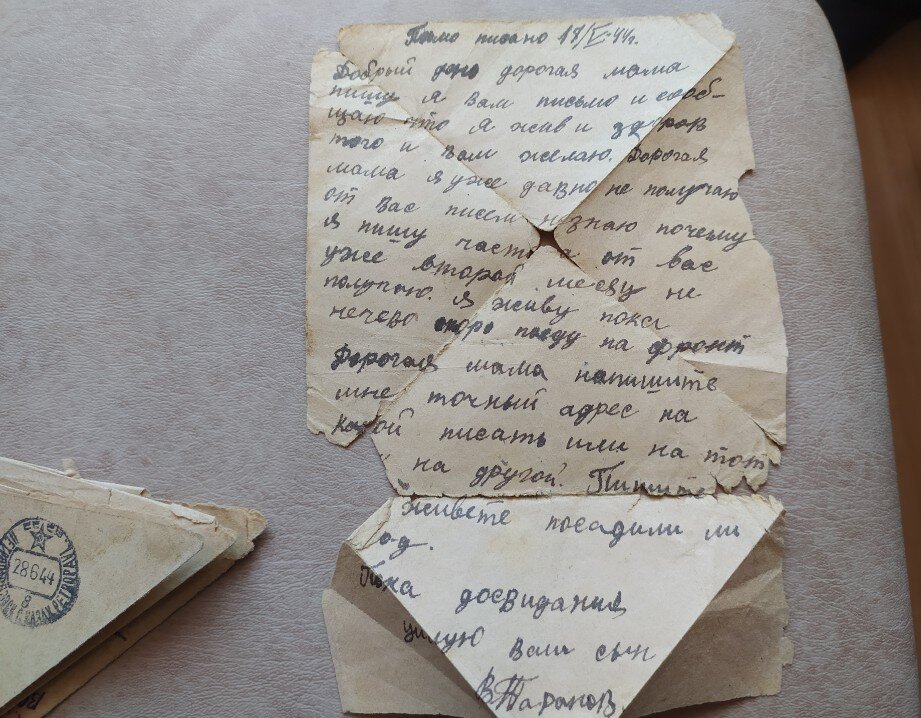 Псмо писано 18/V-44г.
Добрый день дорогая мама
пишу я Вам письмо и сооб-
щаю что я жив и здоров
того и Вам желаю. Дорогая
мама я уже давно не получаю
от Вас писем незнаю почему
я пишу часто а от вас
уже второй месяц не
получаю. Я живу пока
нечево скоро поеду на фронт
Дорогая мама напишите
мне точный адрес на
какой писать или на тот
на другой. Пишите
живете посадили ли
од.
Пока досвидания
целую Ваш сын
В Таранов
28 6 44